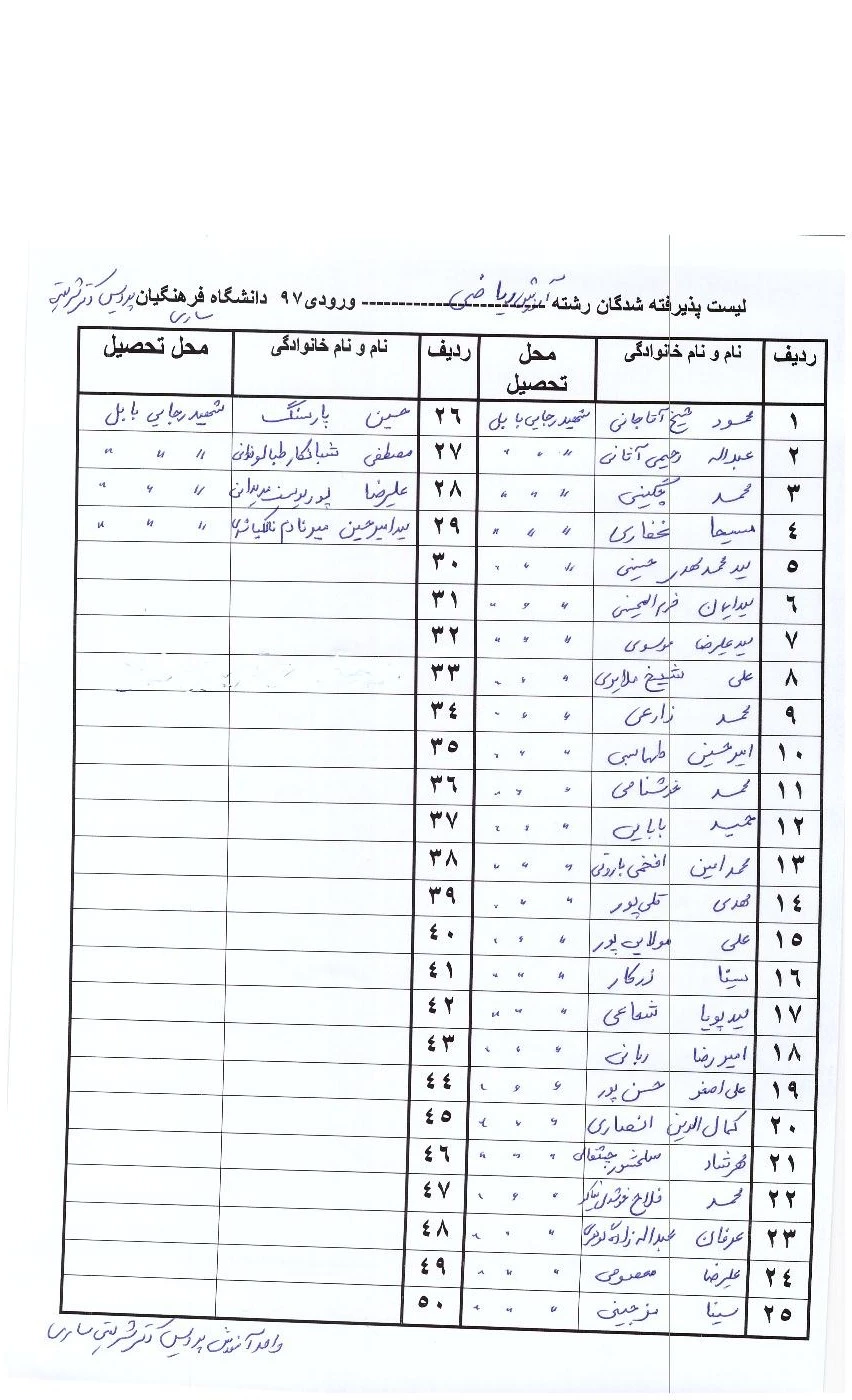 لیست پذیرفته شدگان رشته آموزش ریاضی ورودی ۹۷ دانشگاه فرهنگیان پردیس دکتر شریعتی
ساری
ردیف نام و نام خانوادگی محل تحصیل ردیف نام و نام خانوادگی محل تحصیل
۱ محمود شیخ آقاجانی شهید رجایی بابل ۲۶ حسین پارسنگ شهید رجایی بابل
۲ عبداله رحیمی آتانی " " " ۲۷ مصطفی شبانکار " " "
۳ محمد چگینی " " " ۲۸ علیرضا پوریوسف " " "
۴ مسیحا غفاری " " " ۲۹ سید امیرحسین میرنادم " " "
۵ سید محمد مهدی حسینی " " " ۳۰
۶ سید ایمان " " " ۳۱
۷ سید علیرضا موسوی " " " ۳۲
۸ علی شیخ ملایری " " " ۳۳
۹ محمد زارعی " " " ۳۴
۱۰ امیرحسین طهماسبی " " " ۳۵
۱۱ محمد " " " ۳۶
۱۲ حمید بابایی " " " ۳۷
۱۳ محمد امین افخمی " " " ۳۸
۱۴ مهدی قلی پور " " " ۳۹
۱۵ علی مولایی پور " " " ۴۰
۱۶ سینا زرکار " " " ۴۱
۱۷ سید پویا شعاعی " " " ۴۲
۱۸ امیررضا ربانی " " " ۴۳
۱۹ علی اصغر حسن پور " " " ۴۴
۲۰ کمال الدین انصاری " " " ۴۵
۲۱ مهرشاد " " " ۴۶
۲۲ محمد فلاح " " " ۴۷
۲۳ عرفان عبداله زاده " " " ۴۸
۲۴ علیرضا معصومی " " " ۴۹
۲۵ سینا " " " ۵۰
واحد آموزش پردیس دکتر شریعتی ساری